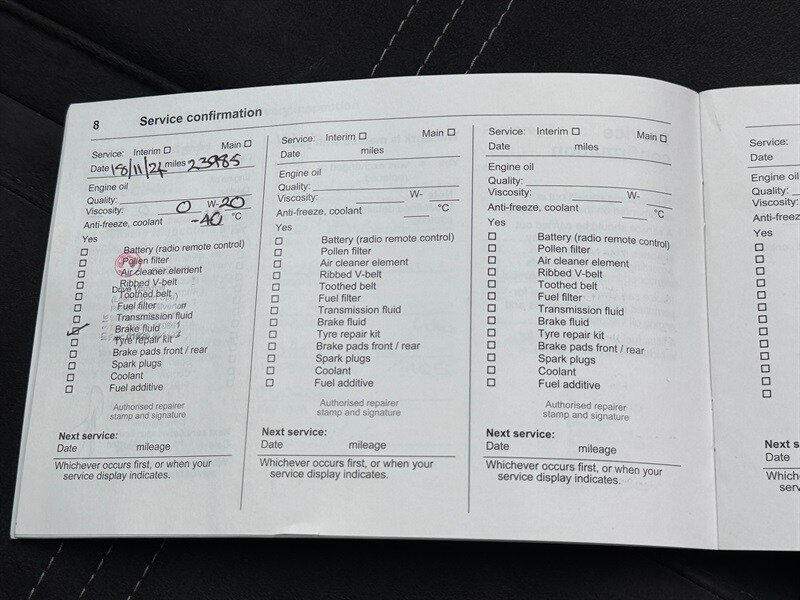 8 Service confirmation
Service: Interim Main
Date 18/11/24 miles
Engine oil
Quality:
Viscosity: 0 W-20
Anti-freeze, coolant -40 °C
Yes
Battery (radio remote control)
Pollen filter
Air cleaner element
Ribbed V-belt
Toothed belt
Fuel filter
Transmission fluid
Brake fluid
Tyre repair kit
Brake pads front / rear
Spark plugs
Coolant
Fuel additive
Authorised repairer
stamp and signature
Next service:
Date mileage
Whichever occurs first, or when your
service display indicates.
Service: Interim Main
Date miles
Engine oil
Quality:
Viscosity: W-
Anti-freeze, coolant °C
Yes
Battery (radio remote control)
Pollen filter
Air cleaner element
Ribbed V-belt
Toothed belt
Fuel filter
Transmission fluid
Brake fluid
Tyre repair kit
Brake pads front / rear
Spark plugs
Coolant
Fuel additive
Authorised repairer
stamp and signature
Next service:
Date mileage
Whichever occurs first, or when your
service display indicates.
Service: Interim Main
Date miles
Engine oil
Quality:
Viscosity: W-
Anti-freeze, coolant °C
Yes
Battery (radio remote control)
Pollen filter
Air cleaner element
Ribbed V-belt
Toothed belt
Fuel filter
Transmission fluid
Brake fluid
Tyre repair kit
Brake pads front / rear
Spark plugs
Coolant
Fuel additive
Authorised repairer
stamp and signature
Next service:
Date mileage
Whichever occurs first, or when your
service display indicates.
Service:
Date
Engine oil
Quality:
Viscosity:
Anti-freeze
Yes
Next s
Date
Which
serv